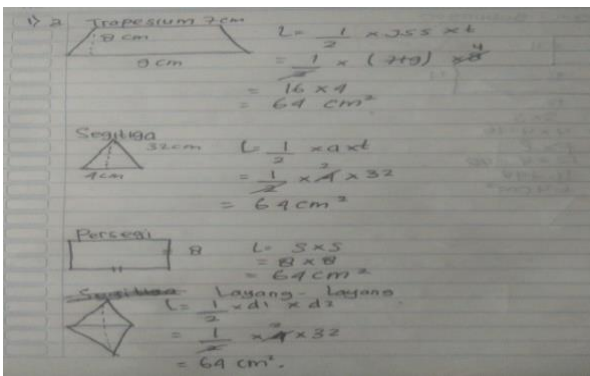 1) a Trapesium 7cm
8 cm
9 cm
L = 1/2 x Jss x t
= 1/2 x (7+9) x 8 4
= 16 x 4
= 64 cm²
Segitiga
32cm
4cm
L = 1/2 x a x t
= 1/2 x 4 2 x 32
= 64 cm²
Persegi
8
L = s x s
= 8 x 8
= 64 cm²
Segitiga Layang - Layang
L = 1/2 x d1 x d2
= 1/2 x 4 2 x 32
= 64 cm².